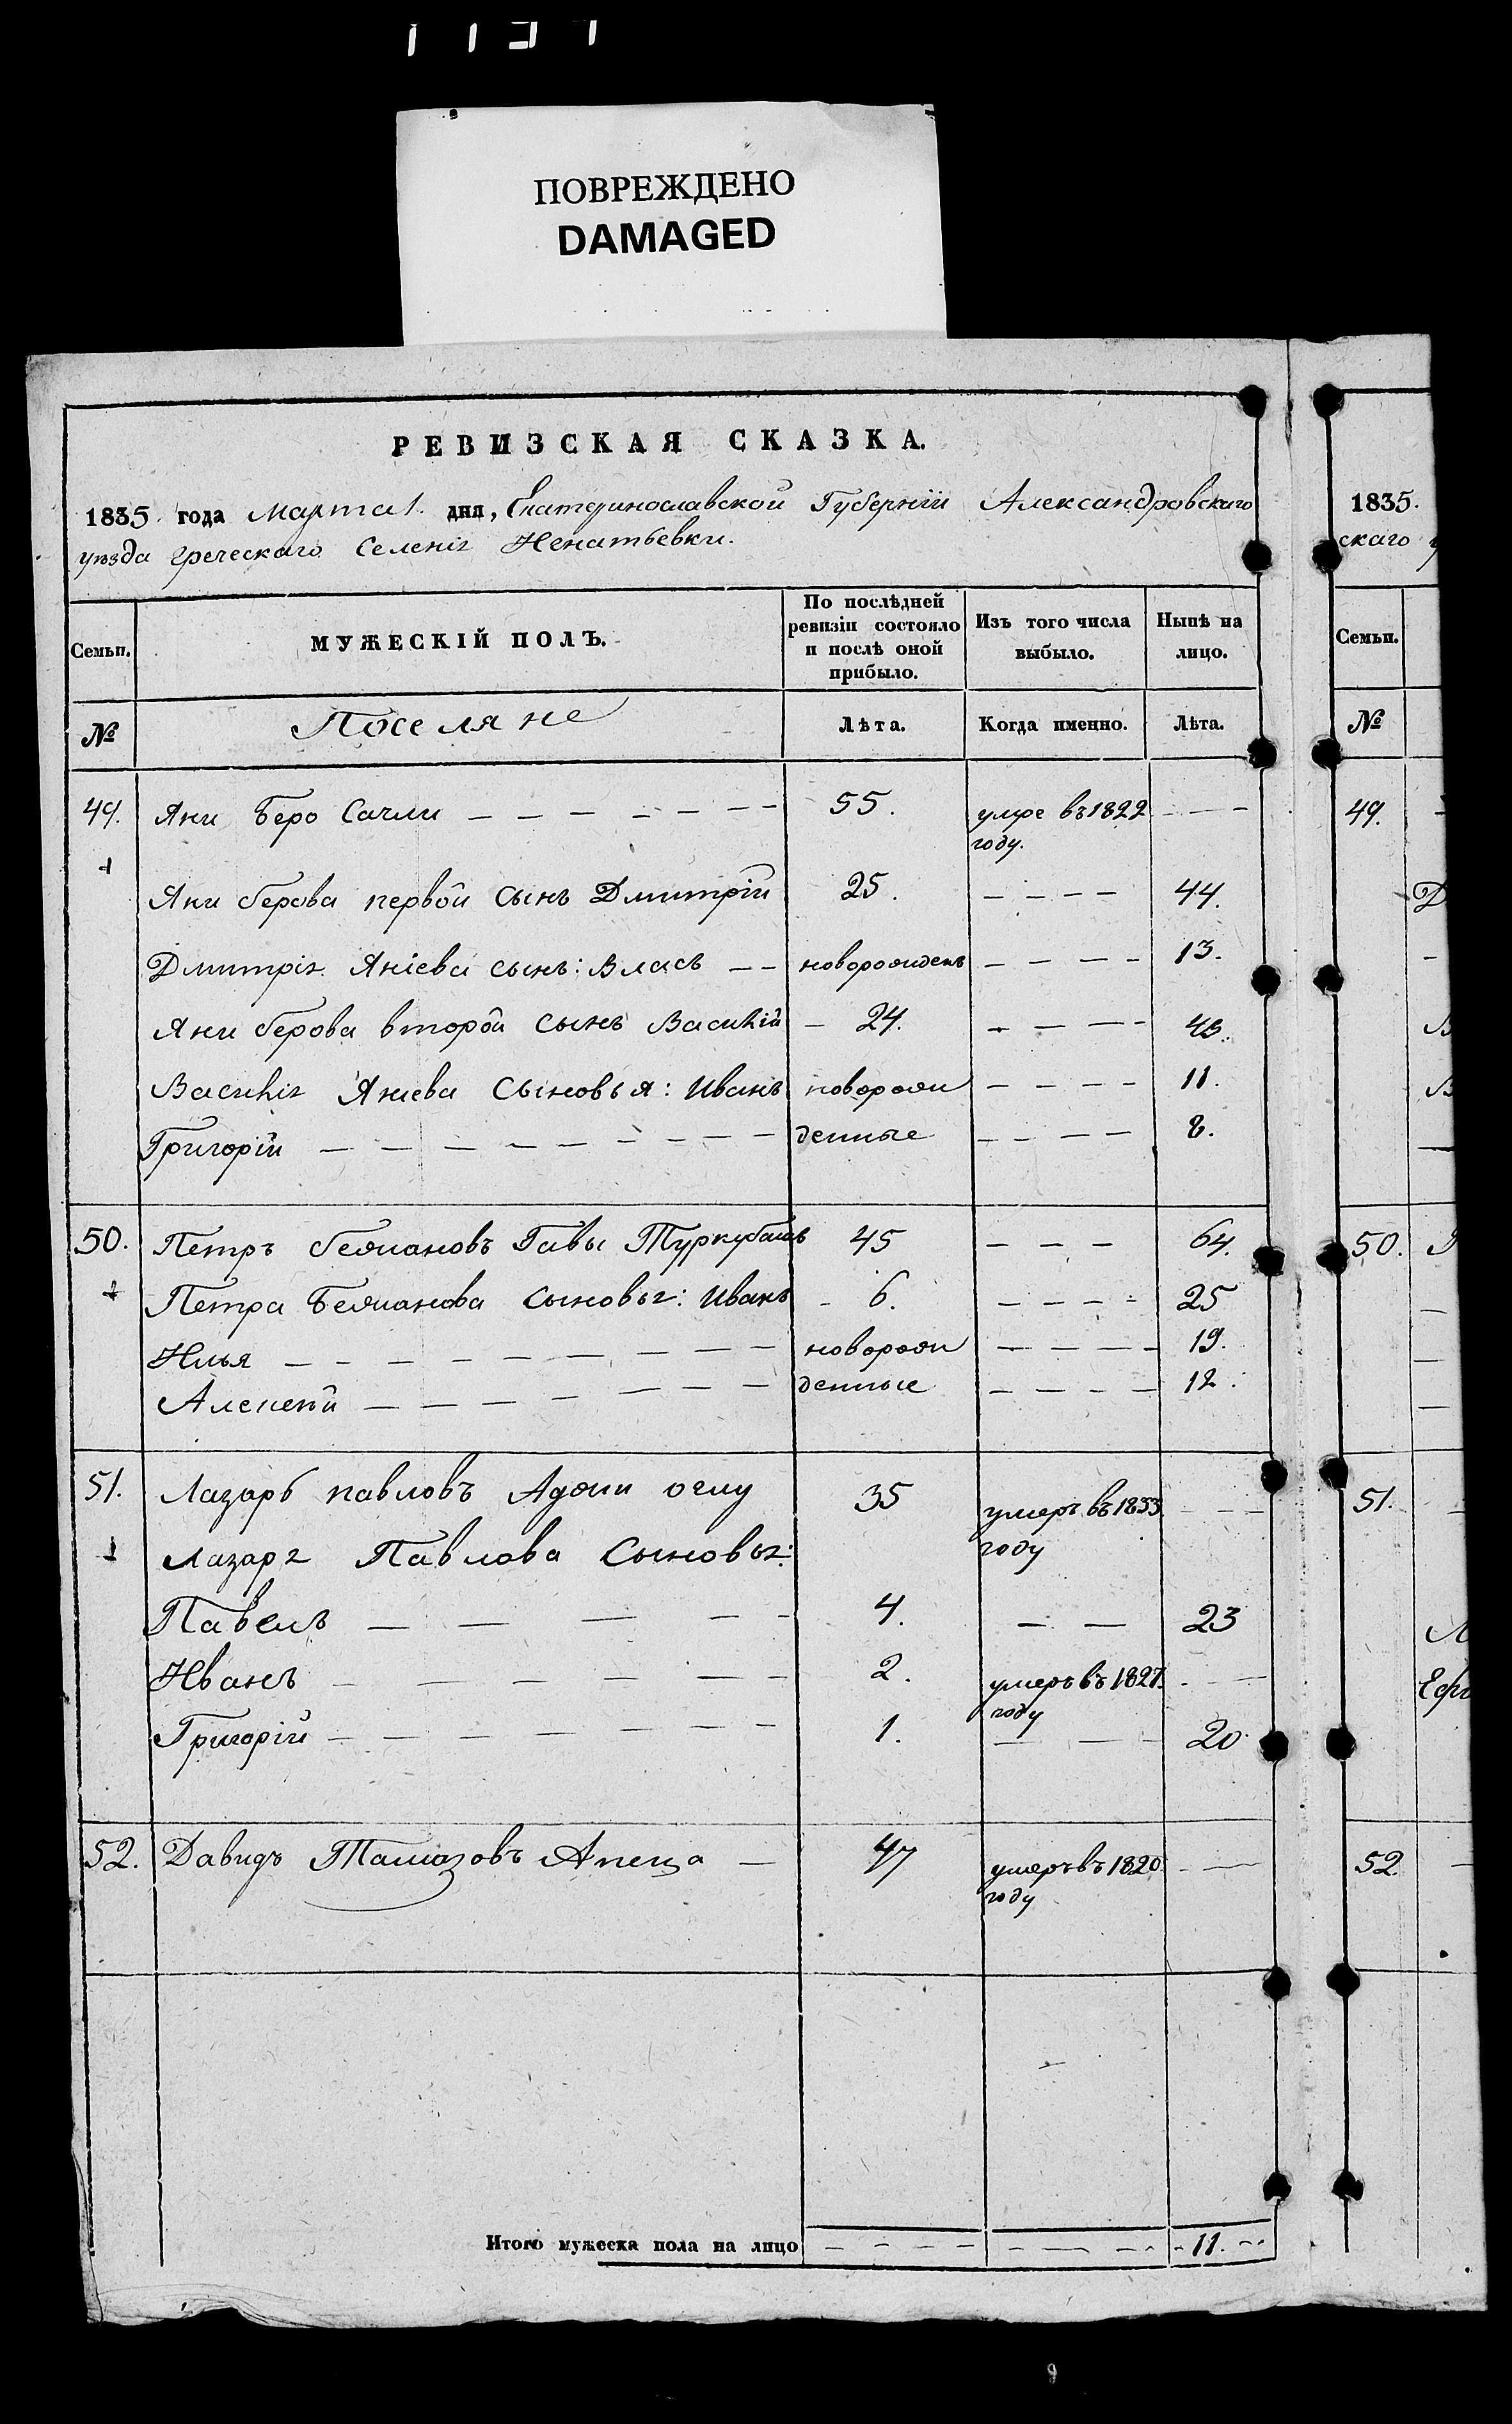 ПОВРЕЖДЕНО
DAMAGED
РЕВИЗСКАЯ СКАЗКА.
1835 года Марта 1. дня, Екатеринославской Губернiи Александровскаго
уѣзда греческаго Селенiя Игнатьевки.
Семьи.
МУЖЕСКIЙ ПОЛЪ.
По послѣдней ревизiи состояло и послѣ оной прибыло.
Изъ того числа выбыло.
Нынѣ на лицо.
№
Поселяне
Лѣта.
Когда именно.
Лѣта.
49. Яни Беро Сачли 55. умре въ 1822 году.
Яни берова первой сынъ Дмитрiй 25. 44.
Дмитрiя Янiева сынъ: Власъ новорожденъ 13.
Яни берова второй сынъ Василiй 24. 43.
Василiя Янiева Сыновья: Иванъ новорож 11.
Григорiй денные 8.
50. Петръ бежановъ Гавы Туркубашъ 45 64.
Петра Бежанова сыновья: Иванъ 6. 25
Илья новорож 19.
Алексей денные 12.
51. Лазарь павловъ Аджи оглу 35 умеръ въ 1833 году
Лазаря Павлова Сыновья:
Павелъ 4. 23
Иванъ 2. умеръ въ 1827. году
Григорiй 1. 20
52. Давидъ Тамазовъ Апеща 47 умеръ въ 1820 году
Итого мужеска пола на лицо 11.
1835.
скаго
Семьи.
№
49.
Д
В
В
50.
51.
Л
Ефи
52.
9